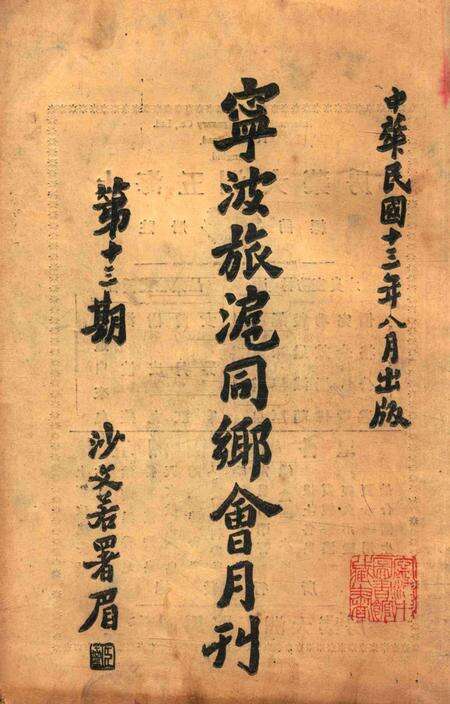 中華民國十三年八月出版
寧波旅滬同鄉會月刊
第十三期
沙文若署眉